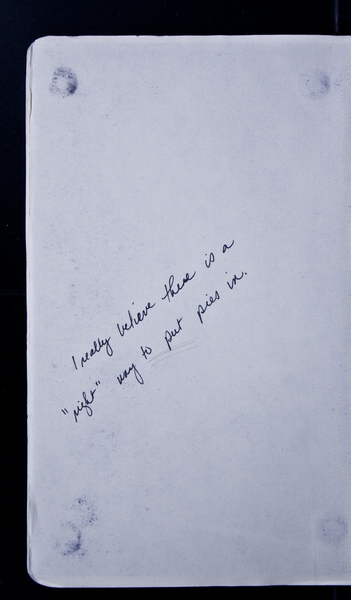 I really believe there is a
"right" way to put pies in.